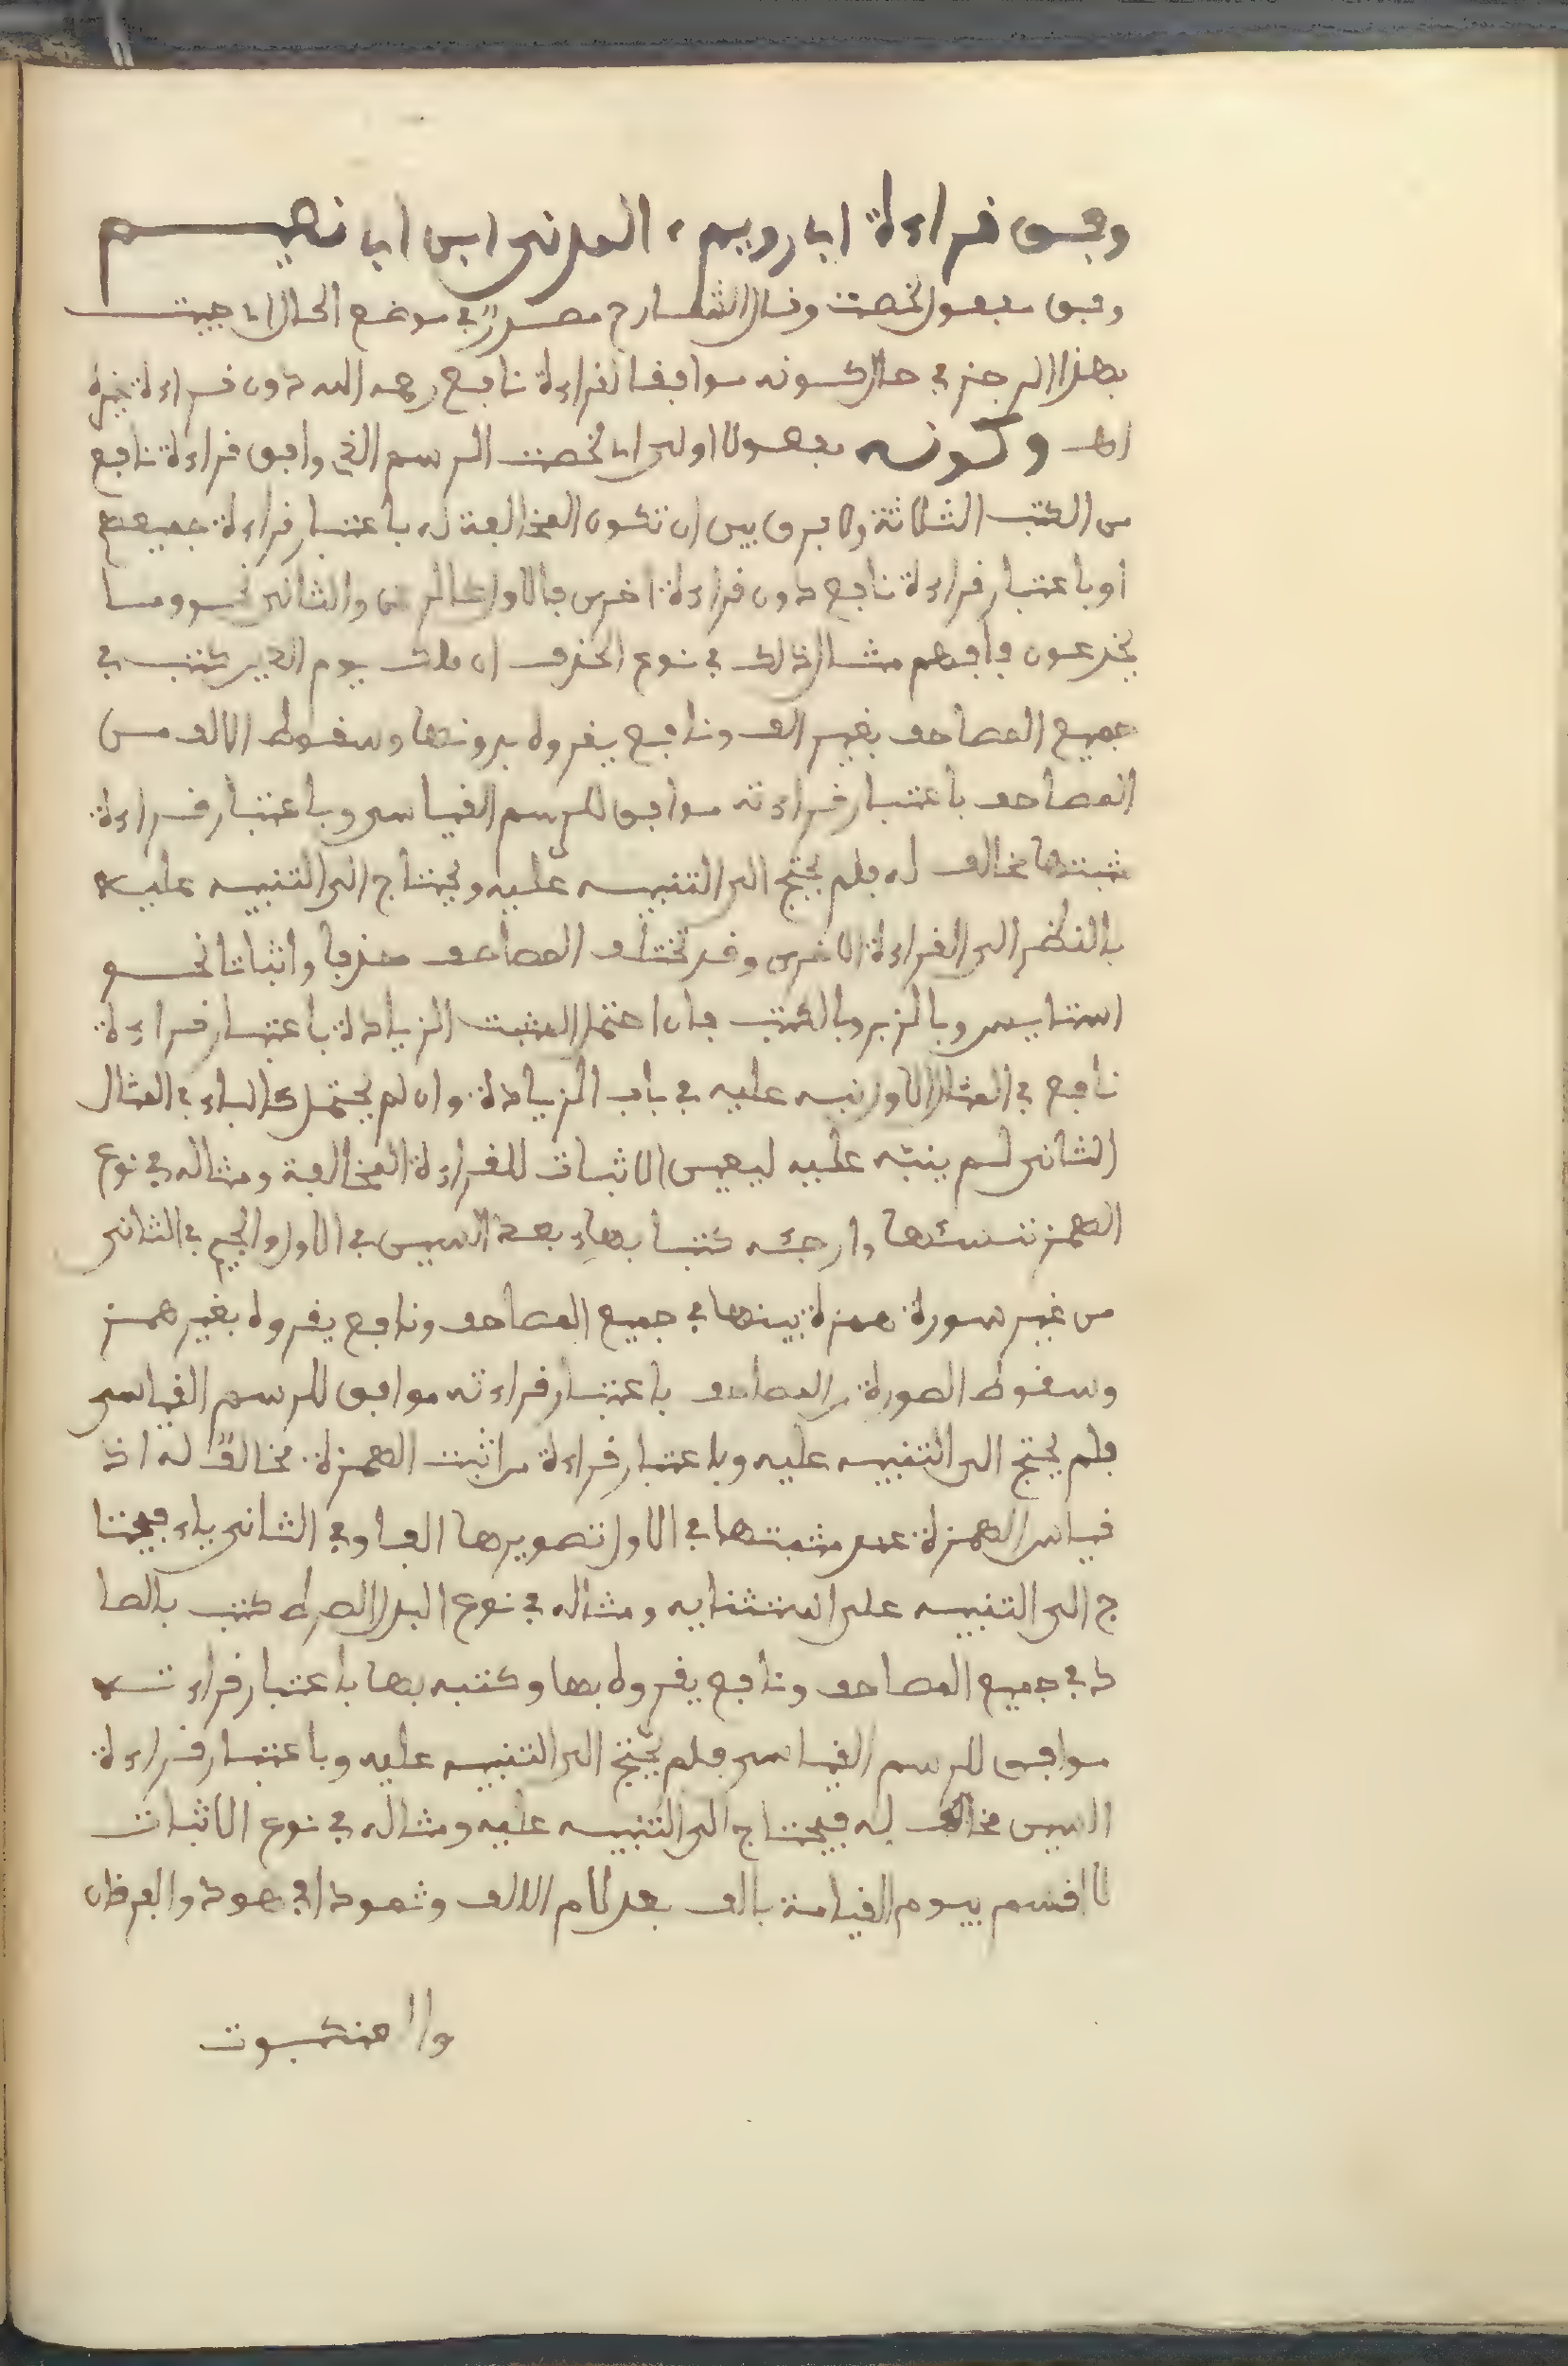 وفق قراءة ابي رويم المدني ابن ابي نعيم
وفق مفعول لخصت وقال الشارح مصدر في موضع الحال اي جيت
بهذا الرجز في حال كونه موافقا لقراءة نافع رحمه الله دون قراءة غيره
اهـ وكونه مفعولا اولى اي لخصت الرسم الذي وافق قراءة نافع
من الكتب الثلاثة ولا فرق بين ان تكون المخالفة له باعتبار قراءة جميعهم
او باعتبار قراءة نافع دون قراءة اخرى فالاول كالرحمن والثاني نحو وما
يخدعون فافهم مثال ذلك في نوع الحذف ان ملك يوم الدين كتب في
جميع المصاحف بغير الف ونافع يقروه بدونها وسقوط الالف من
المصاحف باعتبار قراءته موافق للرسم القياسي وباعتبار قراءة
مثبتها مخالف له فلم يحتج الى التنبيه عليه ويحتاج الى التنبيه عليه
بالنظر الى القراءة الاخرى وقد تختلف المصاحف حذفا واثباتا نحو
استايس وبالزبر وبالكتب فان احتمل المثبت الزيادة باعتبار قراءة
نافع في المثال الاول نبه عليه في باب الزيادة وان لم يحتمل كالباء في المثال
الثاني لم ينبه عليه ليعين الاثبات للقراءة المخالفة ومثاله في نوع
الهمز ننسئها وارجئه كتبا بهاء بعد السين في الاول والجيم في الثاني
من غير صورة همزة بينها في جميع المصاحف ونافع يقروه بغير همز
وسقوط الصورة من المصاحف باعتبار قراءته موافق للرسم القياسي
فلم يحتج الى التنبيه عليه وباعتبار قراءة من اثبت الهمزة مخالف له اذ
قياس الهمزة عند مثبتها في الاول تصويرها الفا وفي الثاني ياء فيحتا
ج الى التنبيه على استثنايه ومثاله في نوع البدل الصرط كتب بالصا
د في جميع المصاحف ونافع يقروه بها وكتبه بها باعتبار قراءته
موافق للرسم القياسي فلم يحتج الى التنبيه عليه وباعتبار قراءة
السين مخالف له فيحتاج الى التنبيه عليه ومثاله في نوع الاثبات
لا اقسم بيوم القيامة بالف بعد لام الالف وثمودا في هود والفرقان
والعنكبوت